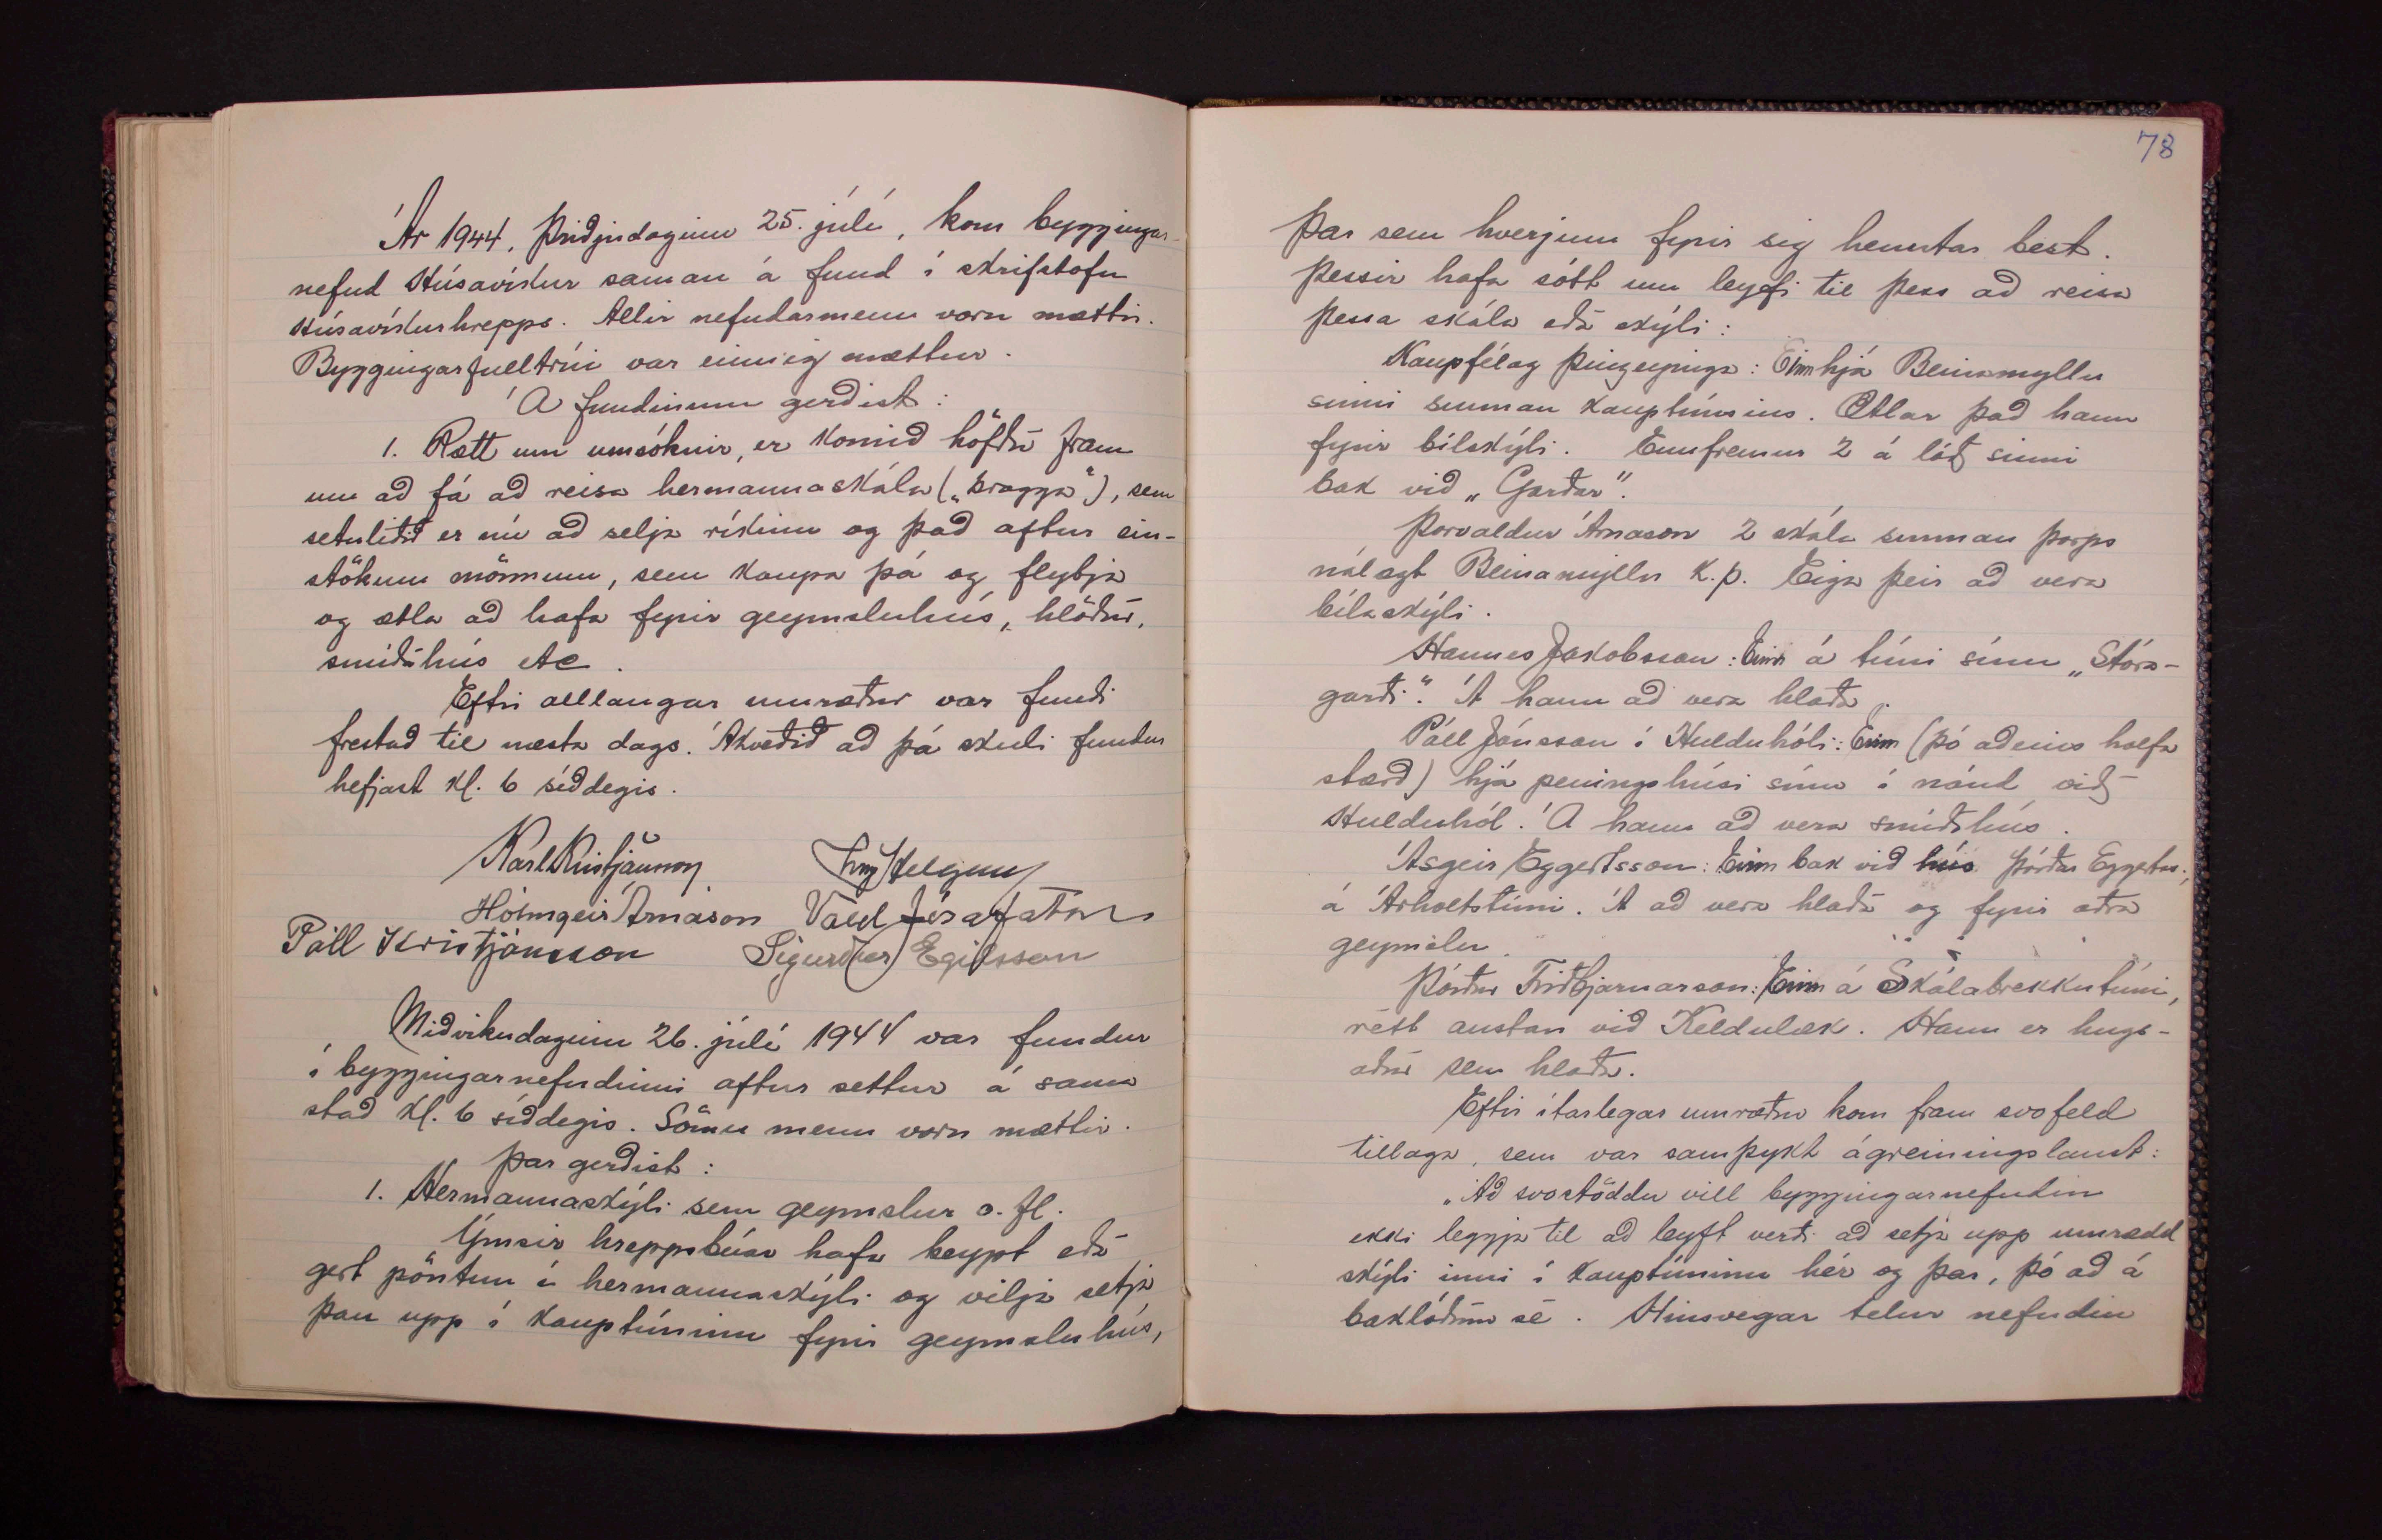 Ár 1944, þriðjudaginn 25. júlí, kom byggingar-
nefnd Húsavíkur saman á fund í skrifstofu
Húsavíkurhrepps. Allir nefndarmenn voru mættir.
Byggingarfulltrúi var einnig mættur.
Á fundinum gerðist:
1. Rætt um umsóknir, er komið höfðu fram
um að fá að reisa hermannaskála („bragga"), sem
setuliðið er nú að selja ríkinu og það aftur ein-
stökum mönnum, sem kaupa þá og flytja
og ætla að hafa fyrir geymsluhús, hlöður,
smíðahús etc.
Eftir alllangar umræður var fundi
frestað til næsta dags. Ákveðið að þá skuli fundur
hefjast kl. 6 síðdegis.
Karl Kristjánsson
Helgason
Hólmgeir Árnason Vald Jósafatsson
Páll Kristjánsson Sigurður Egilsson
Miðvikudaginn 26. júlí 1944 var fundur
í byggingarnefndinni aftur settur á sama
stað kl. 6 síðdegis. Sömu menn voru mættir.
Þar gerðist:
1. Hermannaskýli sem geymslur o. fl.
Ýmsir hreppsbúar hafa keypt eða
gert pöntun í hermannaskýli og vilja setja
þau upp í kauptúninu fyrir geymsluhús,
78
þar sem hverjum fyrir sig hentar best.
Þessir hafa sótt um leyfi til þess að reisa
þessa skála eða skýli:
Kaupfélag Þingeyinga: Einn hjá Beinamyllu
sinni sunnan kauptúnsins. Ætlar það hann
fyrir bílskýli. Ennfremur 2 á lóð sinni
bak við „Garðar".
Þorvaldur Árnason 2 skála sunnan þorps
nálægt Beinamyllu K.Þ. Eiga þeir að vera
bílaskýli.
Hannes Jakobsson: Einn á túni sínu „Stóra-
garði". Á hann að vera hlaða.
Páll Jónsson í Hulduhóli: Einn (þó aðeins hálfa
stærð) hjá peningshúsi sínu í nánd við
Hulduhól. Á hann að vera smíðahús.
Ásgeir Eggertsson: Einn bak við hús Þórðar Eggertss.,
á Árholtstúni. Á að vera hlaða og fyrir aðra
geymslu.
Þórður Friðbjarnarson: Einn á Skálabrekkutúni,
rétt austan við Keldulæk. Hann er hugs-
aður sem hlaða.
Eftir ítarlegar umræður kom fram svofeld
tillaga, sem var samþykt ágreiningslaust:
„Að svo stöddu vill byggingarnefndin
ekki leggja til að leyft verði að setja upp umrædd
skýli inni í kauptúninu hér og þar, þó að á
baklóðum sé. Hinsvegar telur nefndin